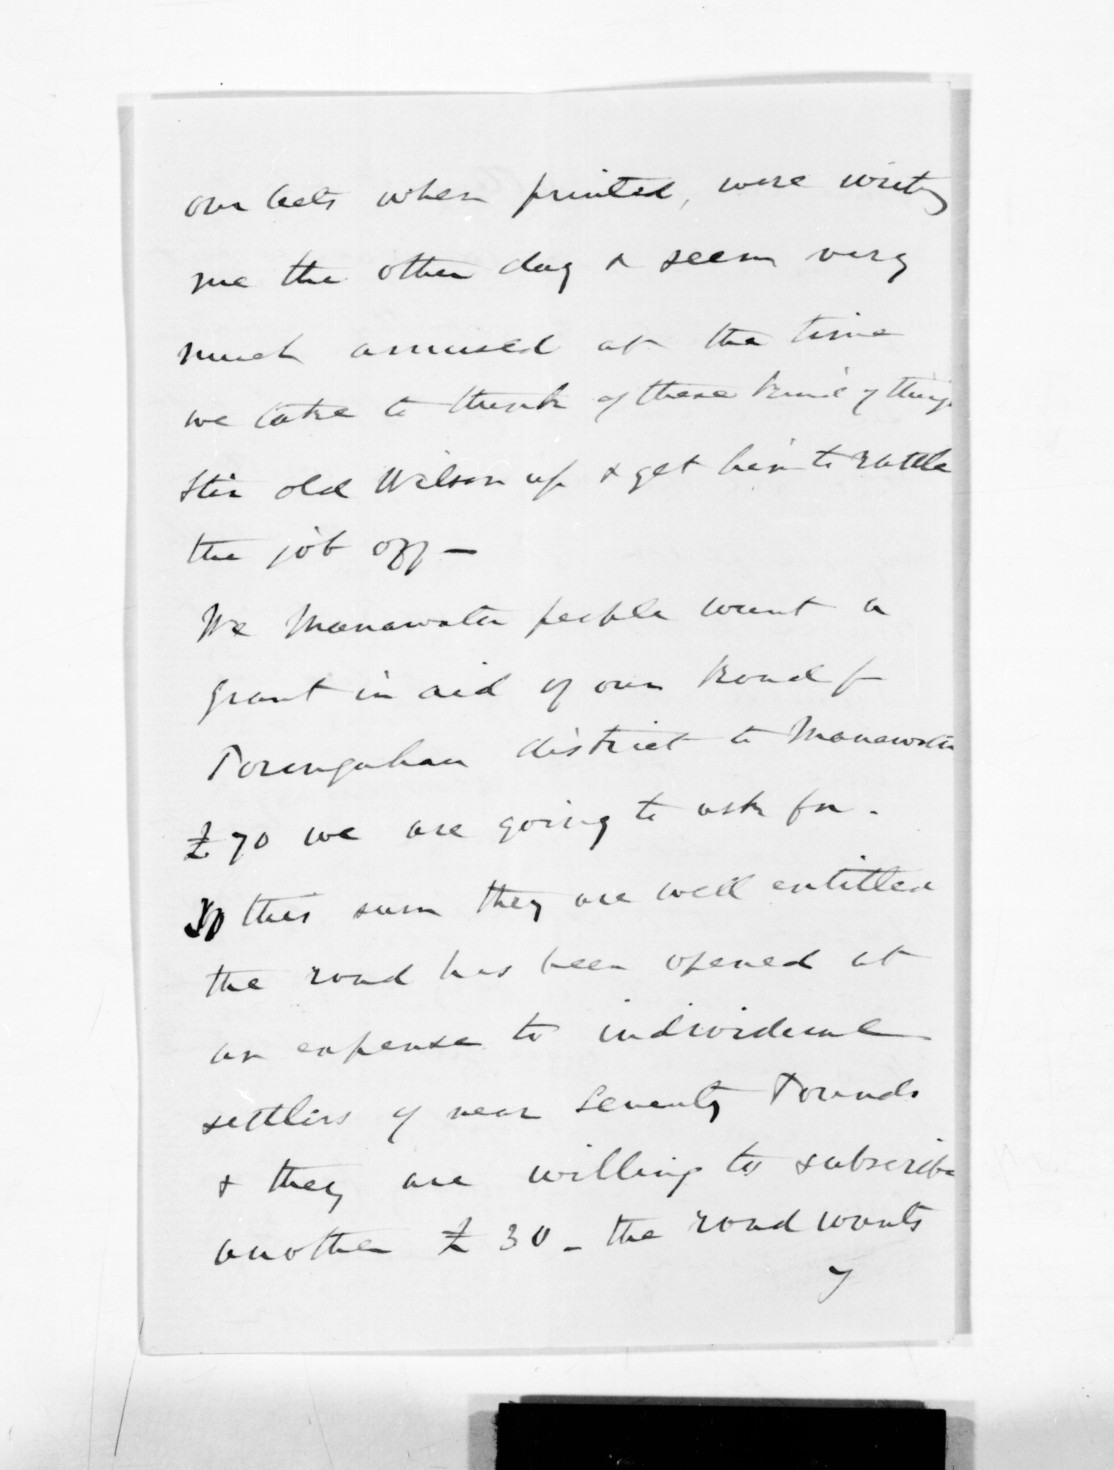 our Acts when printed, were writing
me the other day & seem very
much amused at the time
we take to think of these kind of things
Stir old Wilson up & get him to rattle
the job off —
We Manawatu people want a
grant in aid of our Road fm
Porungahau district to Manawatu
£70 we are going to ask for.
To this sum they are well entitled
the road has been opened at
an expense to individual
settlers of near Seventy Pounds
& they are willing to subscribe
another £30 - the road wants